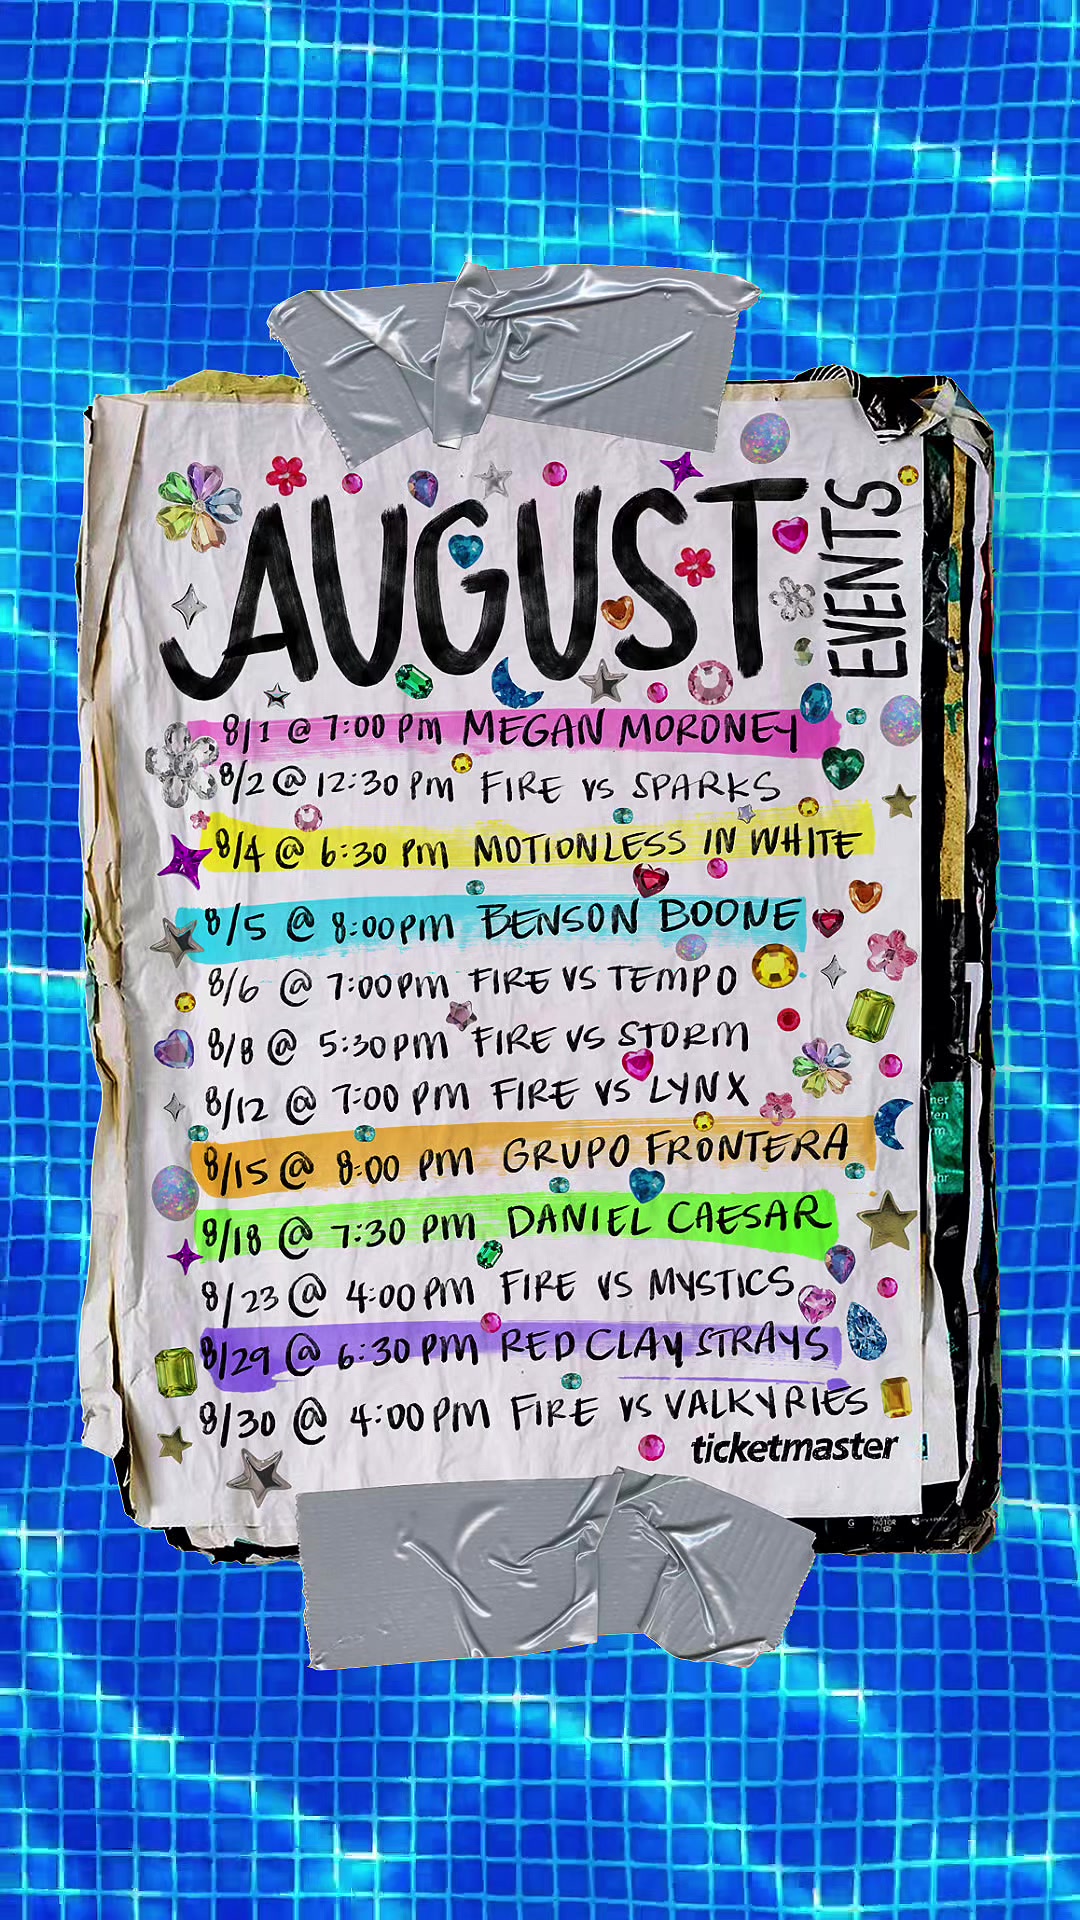 AUGUST
EVENTS
8/1 @ 7:00 PM MEGAN MORONEY
8/2 @ 12:30 PM FIRE VS SPARKS
8/4 @ 6:30 PM MOTIONLESS IN WHITE
8/5 @ 8:00PM BENSON BOONE
8/6 @ 7:00PM FIRE VS TEMPO
8/8 @ 5:30PM FIRE VS STORM
8/12 @ 7:00 PM FIRE VS LYNX
8/15 @ 8:00 PM GRUPO FRONTERA
8/18 @ 7:30 PM DANIEL CAESAR
8/23 @ 4:00PM FIRE VS MYSTICS
8/29 @ 6:30 PM RED CLAY STRAYS
8/30 @ 4:00PM FIRE VS VALKYRIES
ticketmaster